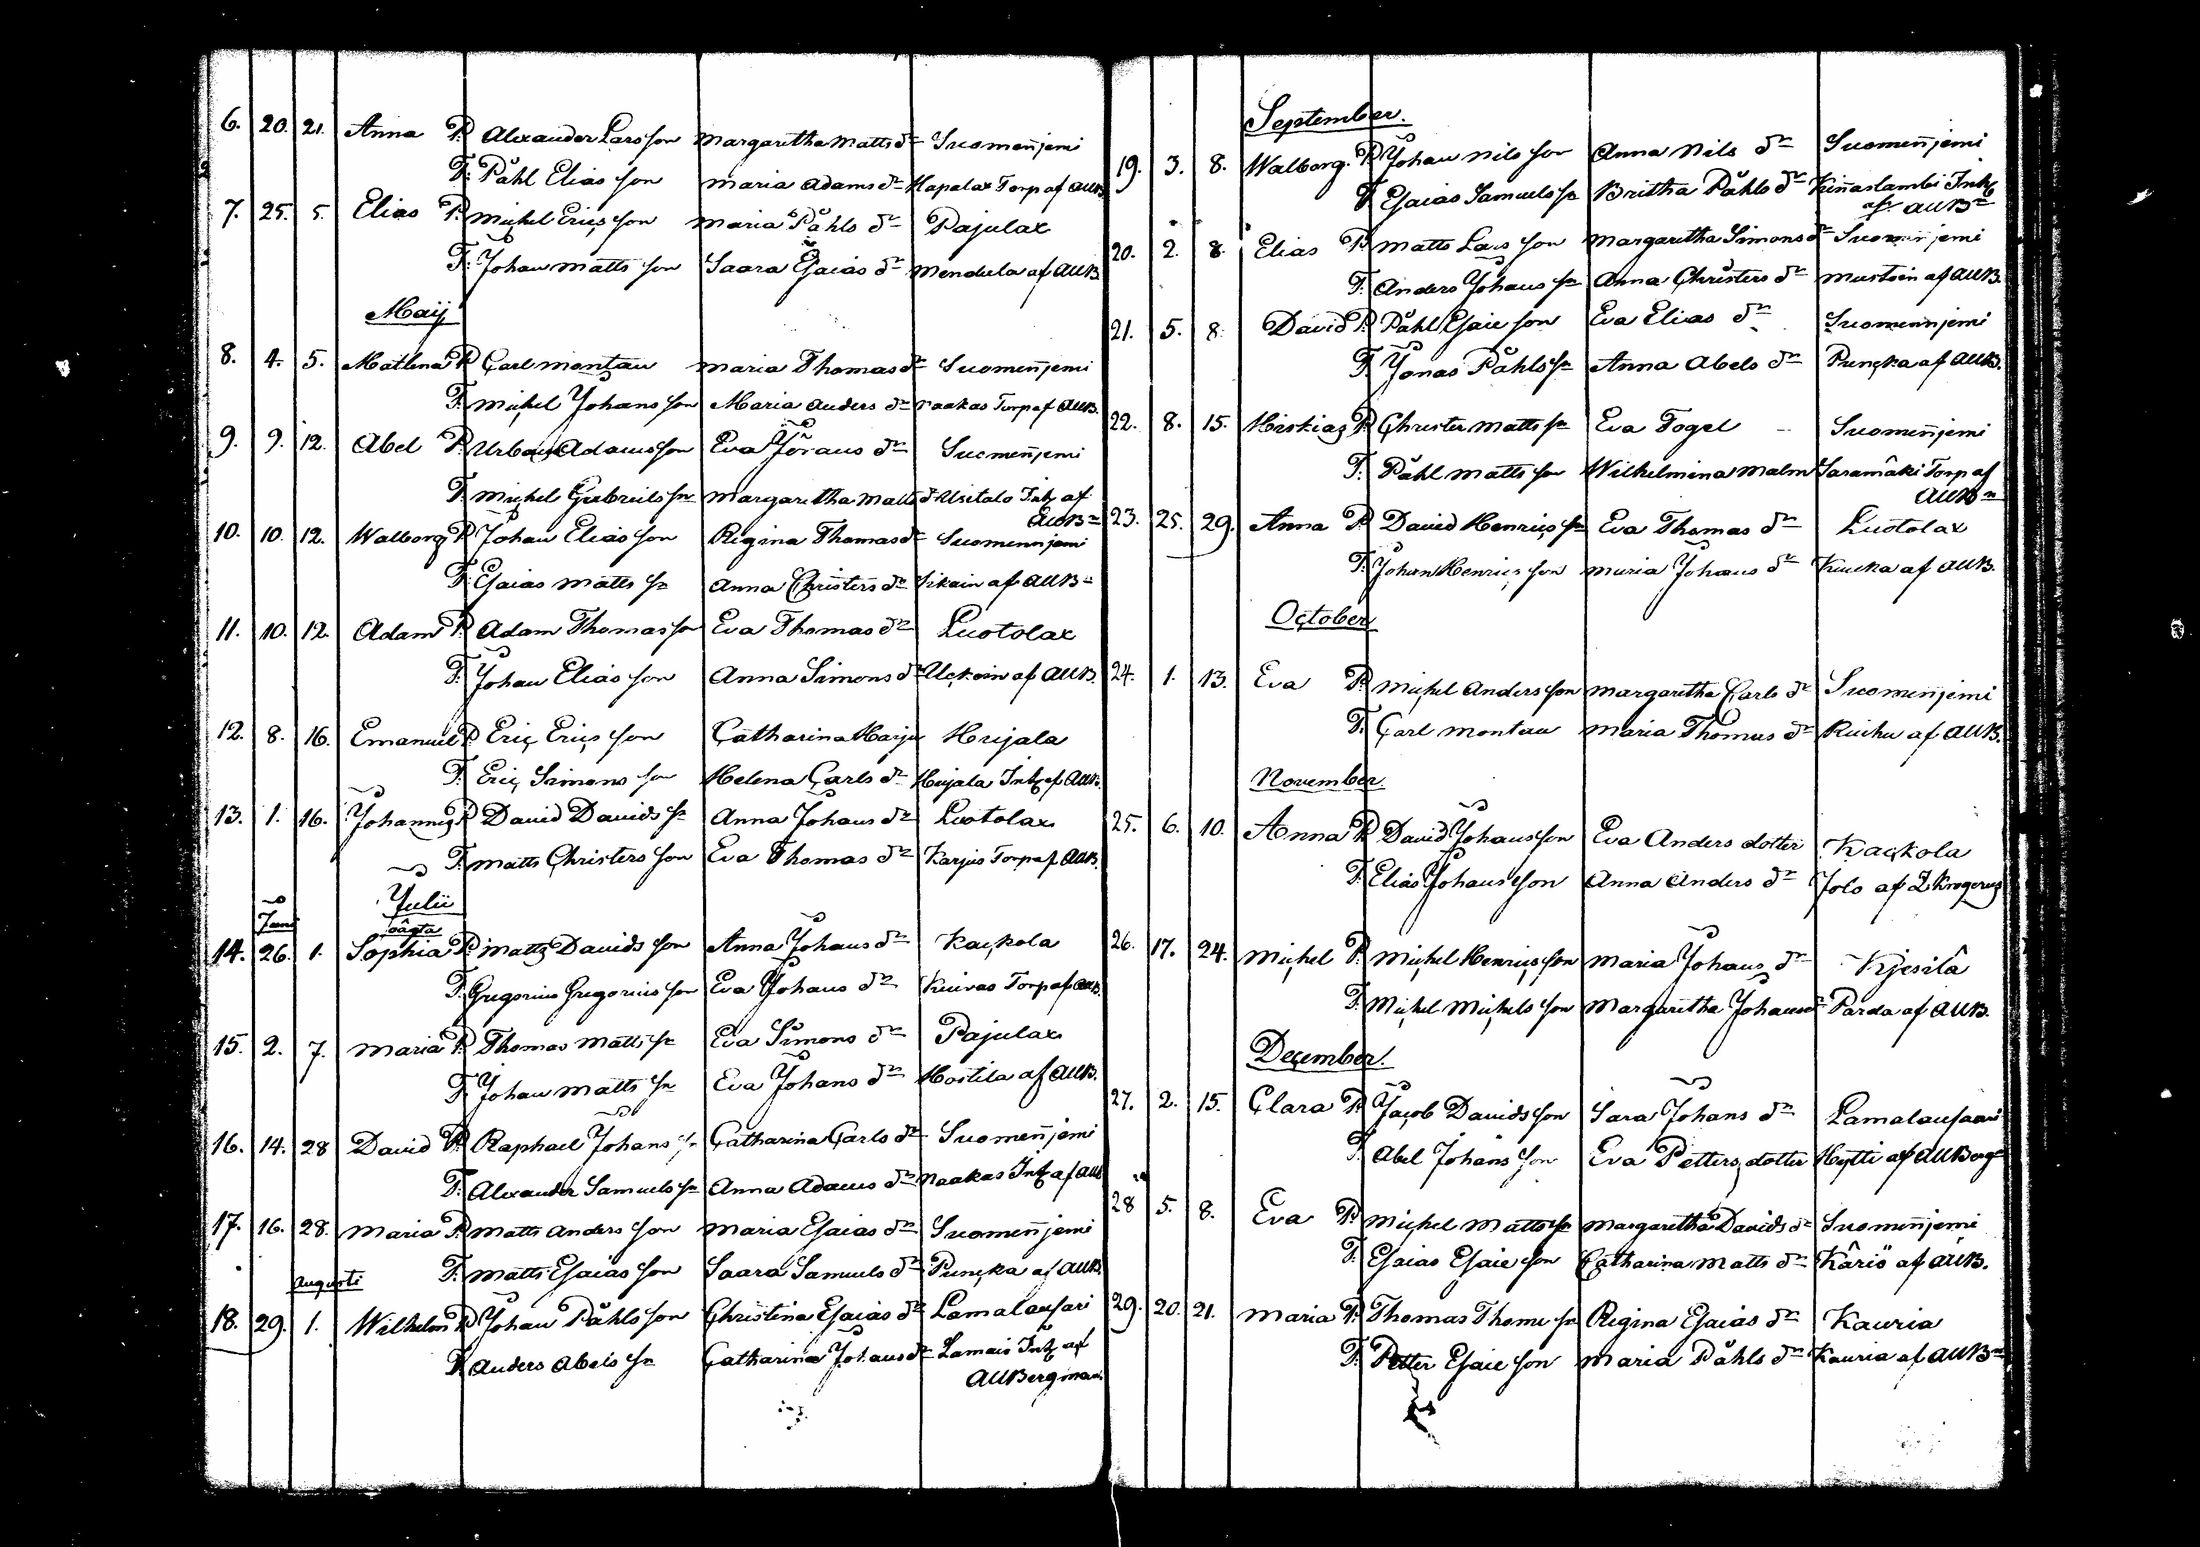 6. 20. 21. Anna P. Alexander Larsson Margaretha Matts dr Suomenjemi
F. Påhl Elias son Maria Adams dr Hapalax Torp af AUB
7. 25. 5. Elias P. Michel Erics son Maria Påhls dr Pajulax
F. Johan Matts son Saara Esaias dr Mendula af AUB
Maij
8. 4. 5. Mathena P. Carl Montau Maria Thomas dr Suomenjemi
F. Michel Johans son Maria Anders dr Naakas Torp af AUB.
9. 9. 12. Abel P. Urban Adamsson Eva Jörans dr Suomenjemi
F. Michel Gabriels sn Margaretha Matts d Usitalo Inh af
AUB
10. 10. 12. Walborg P. Johan Elias son Regina Thomas dr Suomennjemi
F. Esaias Matts sn Anna Christers dr Sikain af AUB
11. 10. 12. Adam P. Adam Thomas son Eva Thomas dr Luotolax
F. Johan Elias son Anna Simons dr Uckoin af AUB.
12. 8. 16. Emanuel P. Eric Erics son Catharina Harju Heijala
F. Eric Simons son Helena Carls dr Heijala Inh af AUB.
13. 1. 16. Johannes P. David Davids sn Anna Johans dr Luotolax
F. Matts Christers son Eva Thomas dr Karjus Torp af AUB
Julii
Juni oägta
14. 26. 1. Sophia P. Matts Davids son Anna Johans dr Kackola
F. Gregorius Gregorius son Eva Johans dr Kuivas Torp af AUB.
15. 2. 7. Maria P. Thomas Matts sn Eva Simons dr Pajulax
F. Johan Matts sn Eva Johans dr Hostila af AUB.
16. 14. 28 David P. Raphael Johans sn Catharina Carls dr Suomenjemi
F. Alexander Samuels sn Anna Adams dr Naakas Inh af AUB
17. 16. 28. Maria P. Matts Anders son Maria Esaias dr Suomenjemi
F. Matts Esaias son Saara Samuels dr Puncka af AUB.
Augusti
18. 29. 1. Wilhelm P. Johan Påhls son Christina Esaias dr Lamalaxsari
F. Anders Abels sn Catharina Johans dr Lamais Inh af
AUBergman.
September.
19. 3. 8. Walborg. P. Johan Nils son Anna Nils dr Suomenjemi
F. Esaias Samuels sn Britha Påhls dr Kinaslambi Inh
af AUB
20. 2. 8. Elias P. Matts Lars son Margaretha Simons dr Suomenjemi
F. Anders Johans sn Anna Christers dr Mustoin af AUB.
21. 5. 8. David P. Påhl Esaie son Eva Elias dr Suomennjemi
F. Jonas Påhls sn Anna Abels dr Puncka af AUB.
22. 8. 15. Hiskias P. Christer Matts sn Eva Fogel Suomenjemi
F. Påhl Matts son Wilhelmina Malm Saramäki Torp af
AUB
23. 25. 29. Anna P. David Henrics sn Eva Thomas dr Luotolax
F. Johan Henrics son Maria Johans dr Kucka af AUB.
October
24. 1. 13. Eva P. Michel Anders son Margaretha Carls dr Suomenjemi
F. Carl Montau Maria Thomas dr Ruihu af AUB.
November.
25. 6. 10. Anna P. David Johansson Eva Anders dotter Kackola
F. Elias Johans son Anna Anders dr Jolo af Z Krogerus
26. 17. 24. Michel P. Michel Henrics son Maria Johans dr Kjesilä
F. Michel Michels son Margaretha Johans dr Parda af AUB.
December.
27. 2. 15. Clara P. Jacob Davids son Sara Johans dr Lamalaxsaari
F. Abel Johans son Eva Petters dotter Hytti af AUBerg
28 5. 8. Eva P. Michel Matts sn Margaretha Davids dr Suomenjemi
F. Esaias Esaie son Catharina Matts dr Käriö af AUB.
29. 20. 21. Maria P. Thomas Thome sn Regina Esaias dr Kauria
F. Petter Esaie son Maria Påhls dr Kauria af AUB